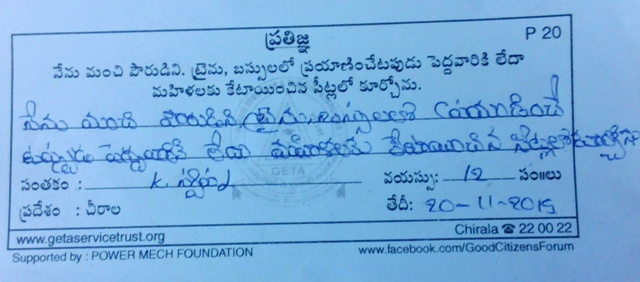 ప్రతిజ్ఞ P 20
నేను మంచి పౌరుడిని. ట్రైను, బస్సులలో ప్రయాణించేటపుడు పెద్దవారికి లేదా
మహిళలకు కేటాయించిన సీట్లలో కూర్చోను.
నేను మంచి పౌరుడిని ట్రైను, బస్సులలో ప్రయాణించే
టప్పుడు పెద్దవారికి లేదా మహిళలకు కేటాయించిన సీట్లలో కూర్చోను
సంతకం : K. వయస్సు: 12 సం॥లు
GETA
ప్రదేశం : చీరాల తేదీ: 20-11-2015
www.getaservicetrust.org Chirala ☎ 22 00 22
Supported by : POWER MECH FOUNDATION www.facebook.com/GoodCitizensForum